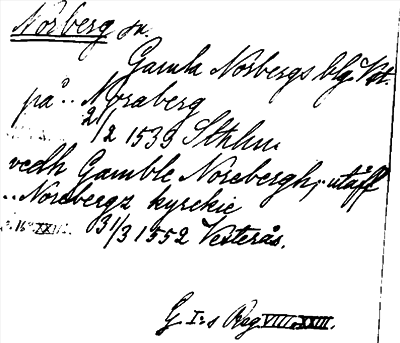 Norberg sn.
Gamla Norbergs bg. Vst.
på .. Noraberg
21/2 1539 Sthlm
vedh Gamble Norebergh, utåff
.. Norebergz kyrckie
31/3 1552 Vesterås.
G I:s Reg VIII, XXIII.